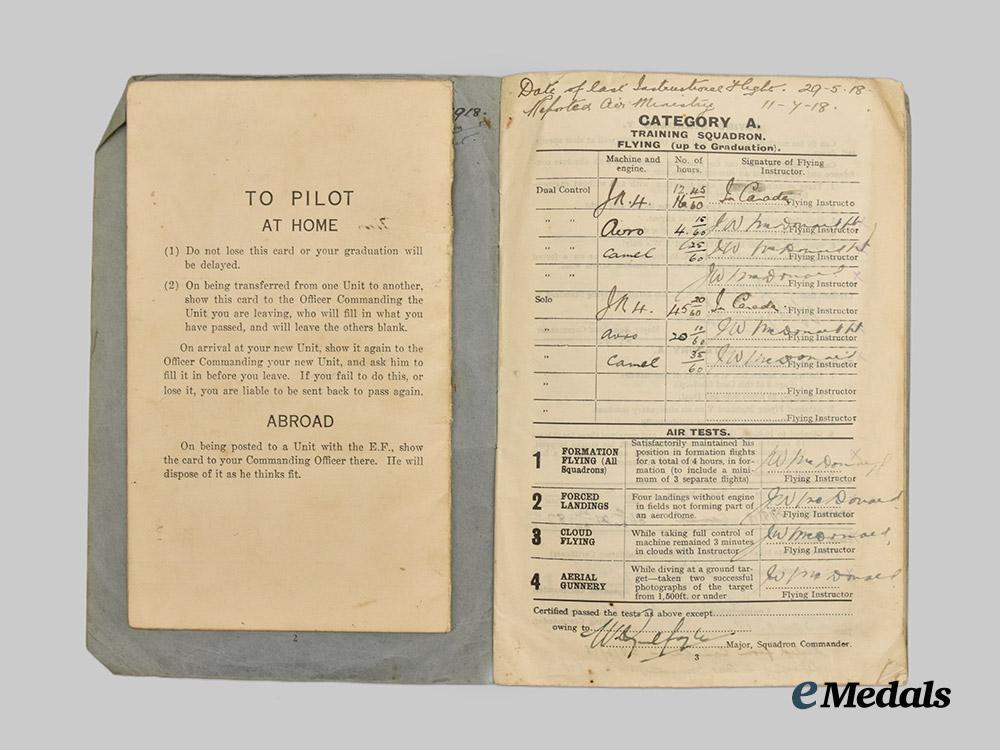 918.
TO PILOT
AT HOME
(1) Do not lose this card or your graduation will
be delayed.
(2) On being transferred from one Unit to another,
show this card to the Officer Commanding the
Unit you are leaving, who will fill in what you
have passed, and will leave the others blank.
On arrival at your new Unit, show it again to the
Officer Commanding your new Unit, and ask him to
fill it in before you leave. If you fail to do this, or
lose it, you are liable to be sent back to pass again.
ABROAD
On being posted to a Unit with the E.F., show
the card to your Commanding Officer there. He will
dispose of it as he thinks fit.
2
Date of last Instructional Flight. 29-5-18.
Reported Air Ministry 11-7-18.
CATEGORY A.
TRAINING SQUADRON.
FLYING (up to Graduation).
Machine and engine. No. of hours. Signature of Flying Instructor.
Dual Control J.N.4. 45/60 In Canada Flying Instructo
" " Avro 4. 15/60 J W McDonald Flying Instructor
" " Camel 25/60 J W McDonald Flying Instructor
" " J W McDonald Flying Instructor
Solo J.N.4. 45 20/60 In Canada. Flying Instructor
" Avro 20 10/60 J W McDonald Flying Instructor
" Camel 35/60 J W McDonald Flying Instructor
" Flying Instructor
" Flying Instructor
AIR TESTS.
1 FORMATION FLYING (All Squadrons) Satisfactorily maintained his
position in formation flights
for a total of 4 hours, in for-
mation (to include a mini-
mum of 3 separate flights) J W McDonald Flying Instructor
2 FORCED LANDINGS Four landings without engine
in fields not forming part of
an aerodrome. J W McDonald Flying Instructor
3 CLOUD FLYING While taking full control of
machine remained 3 minutes
in clouds with Instructor J W McDonald Flying Instructor
4 AERIAL GUNNERY While diving at a ground tar-
get—taken two successful
photographs of the target
from 1,500ft. or under J W McDonald Flying Instructor
Certified passed the tests as above except
owing to Major, Squadron Commander.
3
eMedals